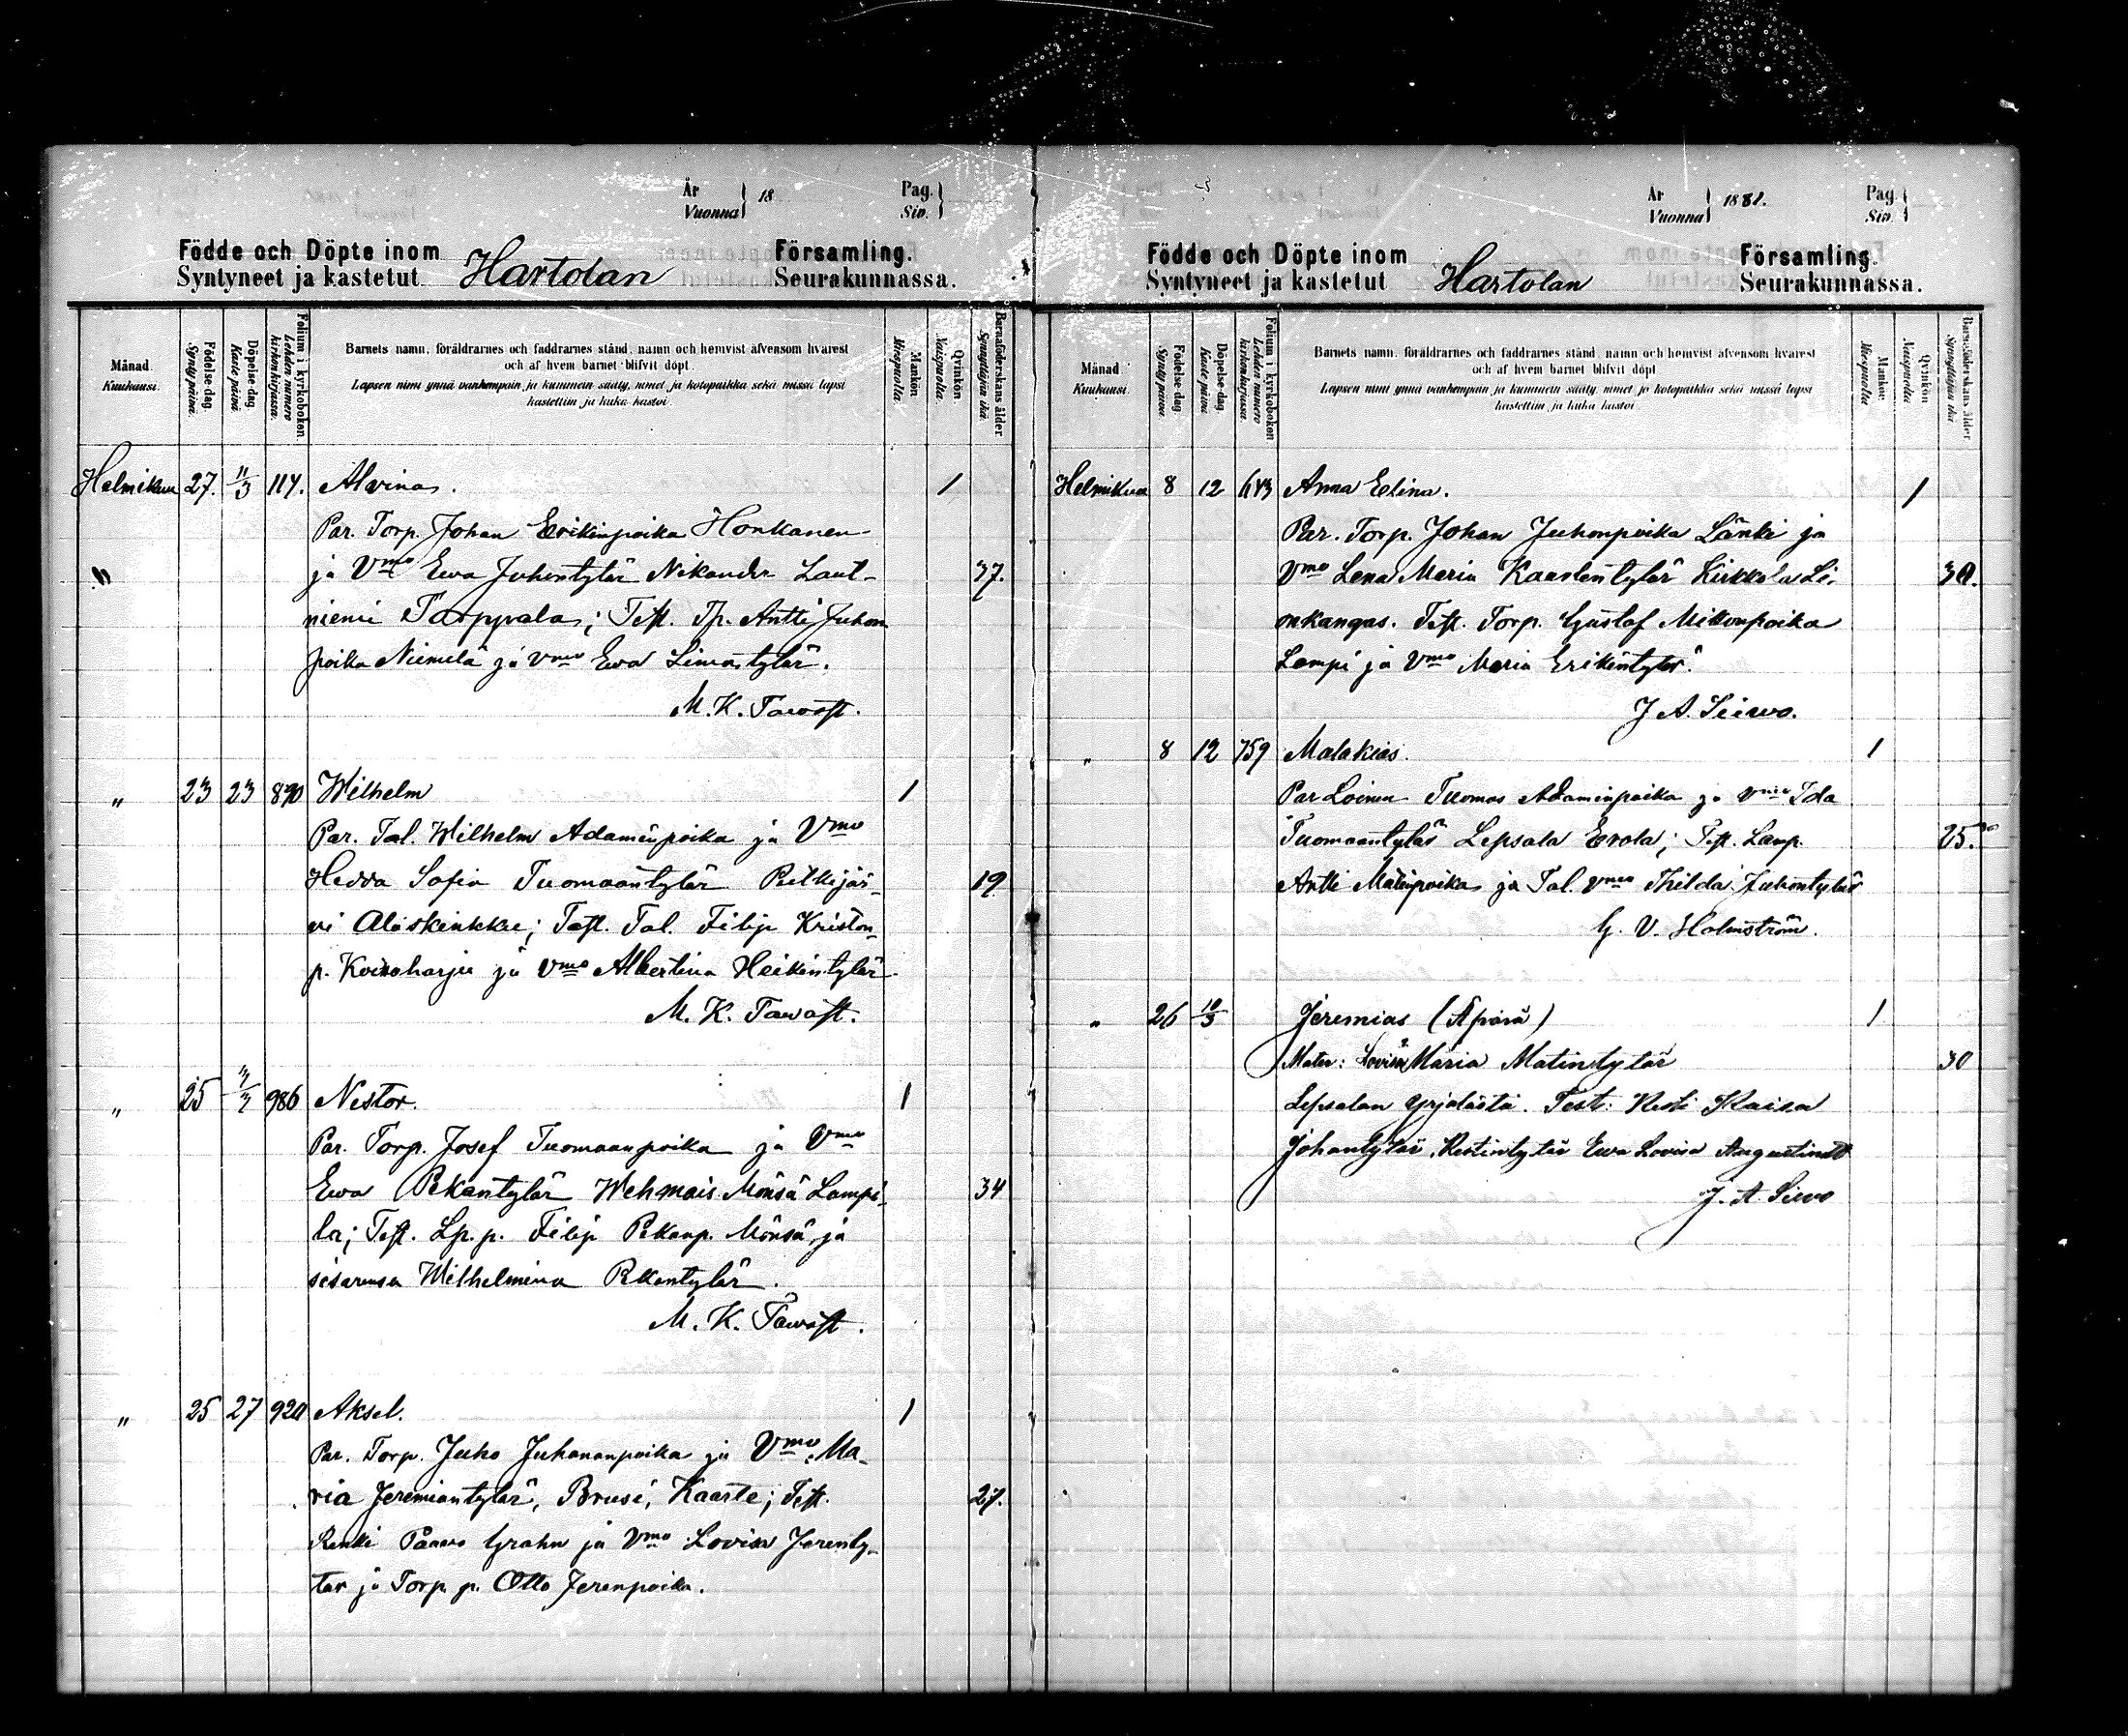 År
Vuonna 18
Pag.
Siv.
Födde och Döpte inom
Syntyneet ja kastetut
Hartolan
Församling.
Seurakunnassa.
Månad.
Kuukausi.
Födelse-dag.
Synty päivä.
Döpelse-dag
Kaste päivä.
Folium i kyrkoboken.
Lehden numero kirkonkirjassa.
Barnets namn, föräldrarnes och faddrarnes stånd, namn och hemvist äfvensom hvarest
och af hvem barnet blifvit döpt.
Lapsen nimi ynnä vanhempain ja kummein sääty, nimet ja kotopaikka sekä missä lapsi
kastettiin ja kuka kastoi.
Mankön
Miespuolia.
Qvinkön
Naispuolia.
Barnaföderskans ålder.
Synnyttäjän ikä.
Helmikuu 27. 11/3 114. Alvina. 1
Par. Torp. Johan Erikinpoika Honkanen
ja Vmo Ewa Juhontytär Nikander Laut- 37.
niemi Torppala; Test. Tp. Antti Juhon
poika Niemelä ja Vmo Ewa Simontytär.
M. K. Tawast.
" 23 23 890 Wilhelm 1
Par. Tal. Wilhelm Adaminpoika ja Vmo
Hedda Sofia Tuomaantytär Pitkäjär- 19
vi Alaskinkku; Test. Tal. Filip Kriston-
p. Koivoharju ja Vmo Albertina Heikintytär
M. K. Tawast.
" 25 3/3 986 Nestor. 1
Par. Torp. Josef Tuomaanpoika ja Vmo
Ewa Pekantytär Wehmais Mönsä Lampi- 34
la; Test. Lp. p. Filip Pekanp. Mönsä ja
sisarensa Wilhelmina Pekantytär.
M. K. Tawast.
" 25 27 920 Aksel. 1
Par. Torp. Juho Juhananpoika ja Vmo Ma-
ria Jeremiantytär, Brusi, Kaarte; Test. 27.
Renki Paavo Grahn ja Vmo Lovisa Jerenty-
tär ja Torp. p. Otto Jerenpoika.
År
Vuonna 1881.
Pag.
Siv.
Födde och Döpte inom
Syntyneet ja kastetut
Hartolan
Församling.
Seurakunnassa.
Månad.
Kuukausi.
Födelse-dag.
Synty päivä.
Döpelse-dag
Kaste päivä.
Folium i kyrkoboken.
Lehden numero kirkonkirjassa.
Barnets namn, föräldrarnes och faddrarnes stånd, namn och hemvist äfvensom hvarest
och af hvem barnet blifvit döpt
Lapsen nimi ynnä vanhempain ja kummein sääty, nimet ja kotopaikka sekä missä lapsi
kastettiin ja kuka kastoi.
Mankön
Miespuolia
Qvinkön
Naispuolia
Barnaföderskans ålder
Synnyttäjän ikä
Helmikuu 8 12 643 Anna Elina. 1
Par. Torp. Johan Juhonpoika Länki ja
Vmo Lena Maria Kaarlentytär Kirkkola Li- 30.
nkangas. Test. Torp. Gustaf Mikonpoika
Lampi ja Vmo Maria Erikintytär.
J. A. Siewo.
" 8 12 759 Malakias. 1
Par Loinen Tuomas Adaminpoika ja Vmo Ida
Tuomaantytär Lepsala Erola; Test. Lamp. 25.
Antti Matinpoika ja Tal. vmo Thilda Juhontytär
G. V. Holmström.
" 26 10/3 Jeremias (Äpärä) 1
Mater: Lovisa Maria Matintytär 30
Lepsalan Yrjölästä. Test: Kesti Kaisa
Johantytär, Kestintytär Ewa Lovisa Augustindr
J. A. Siewo